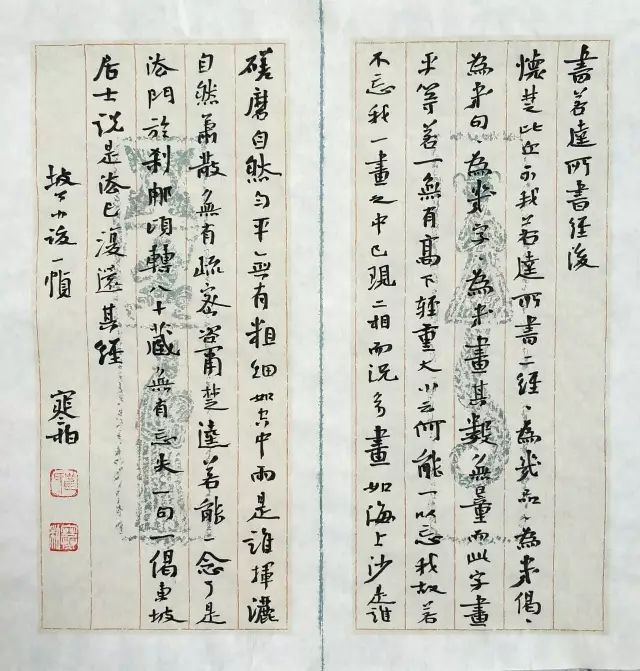 書若逵所書經後
懷楚比丘示我若逵所書二經、為幾品、為幾偈、
為幾句、為幾字、為幾畫其數無量而此字畫
平等若一無有高下輕重大小云何能一以忘我故若
不忘我一畫之中已現二相而況多畫如海上沙是誰
磋磨自然勻平無有粗細如空中雨是誰揮灑
自然蕭散無有疏密咨爾楚逵若能一念了是
法門於刹那頃轉八十藏無有忘失一句一偈東坡
居士說是法已復還其經
坡公小跋一幀